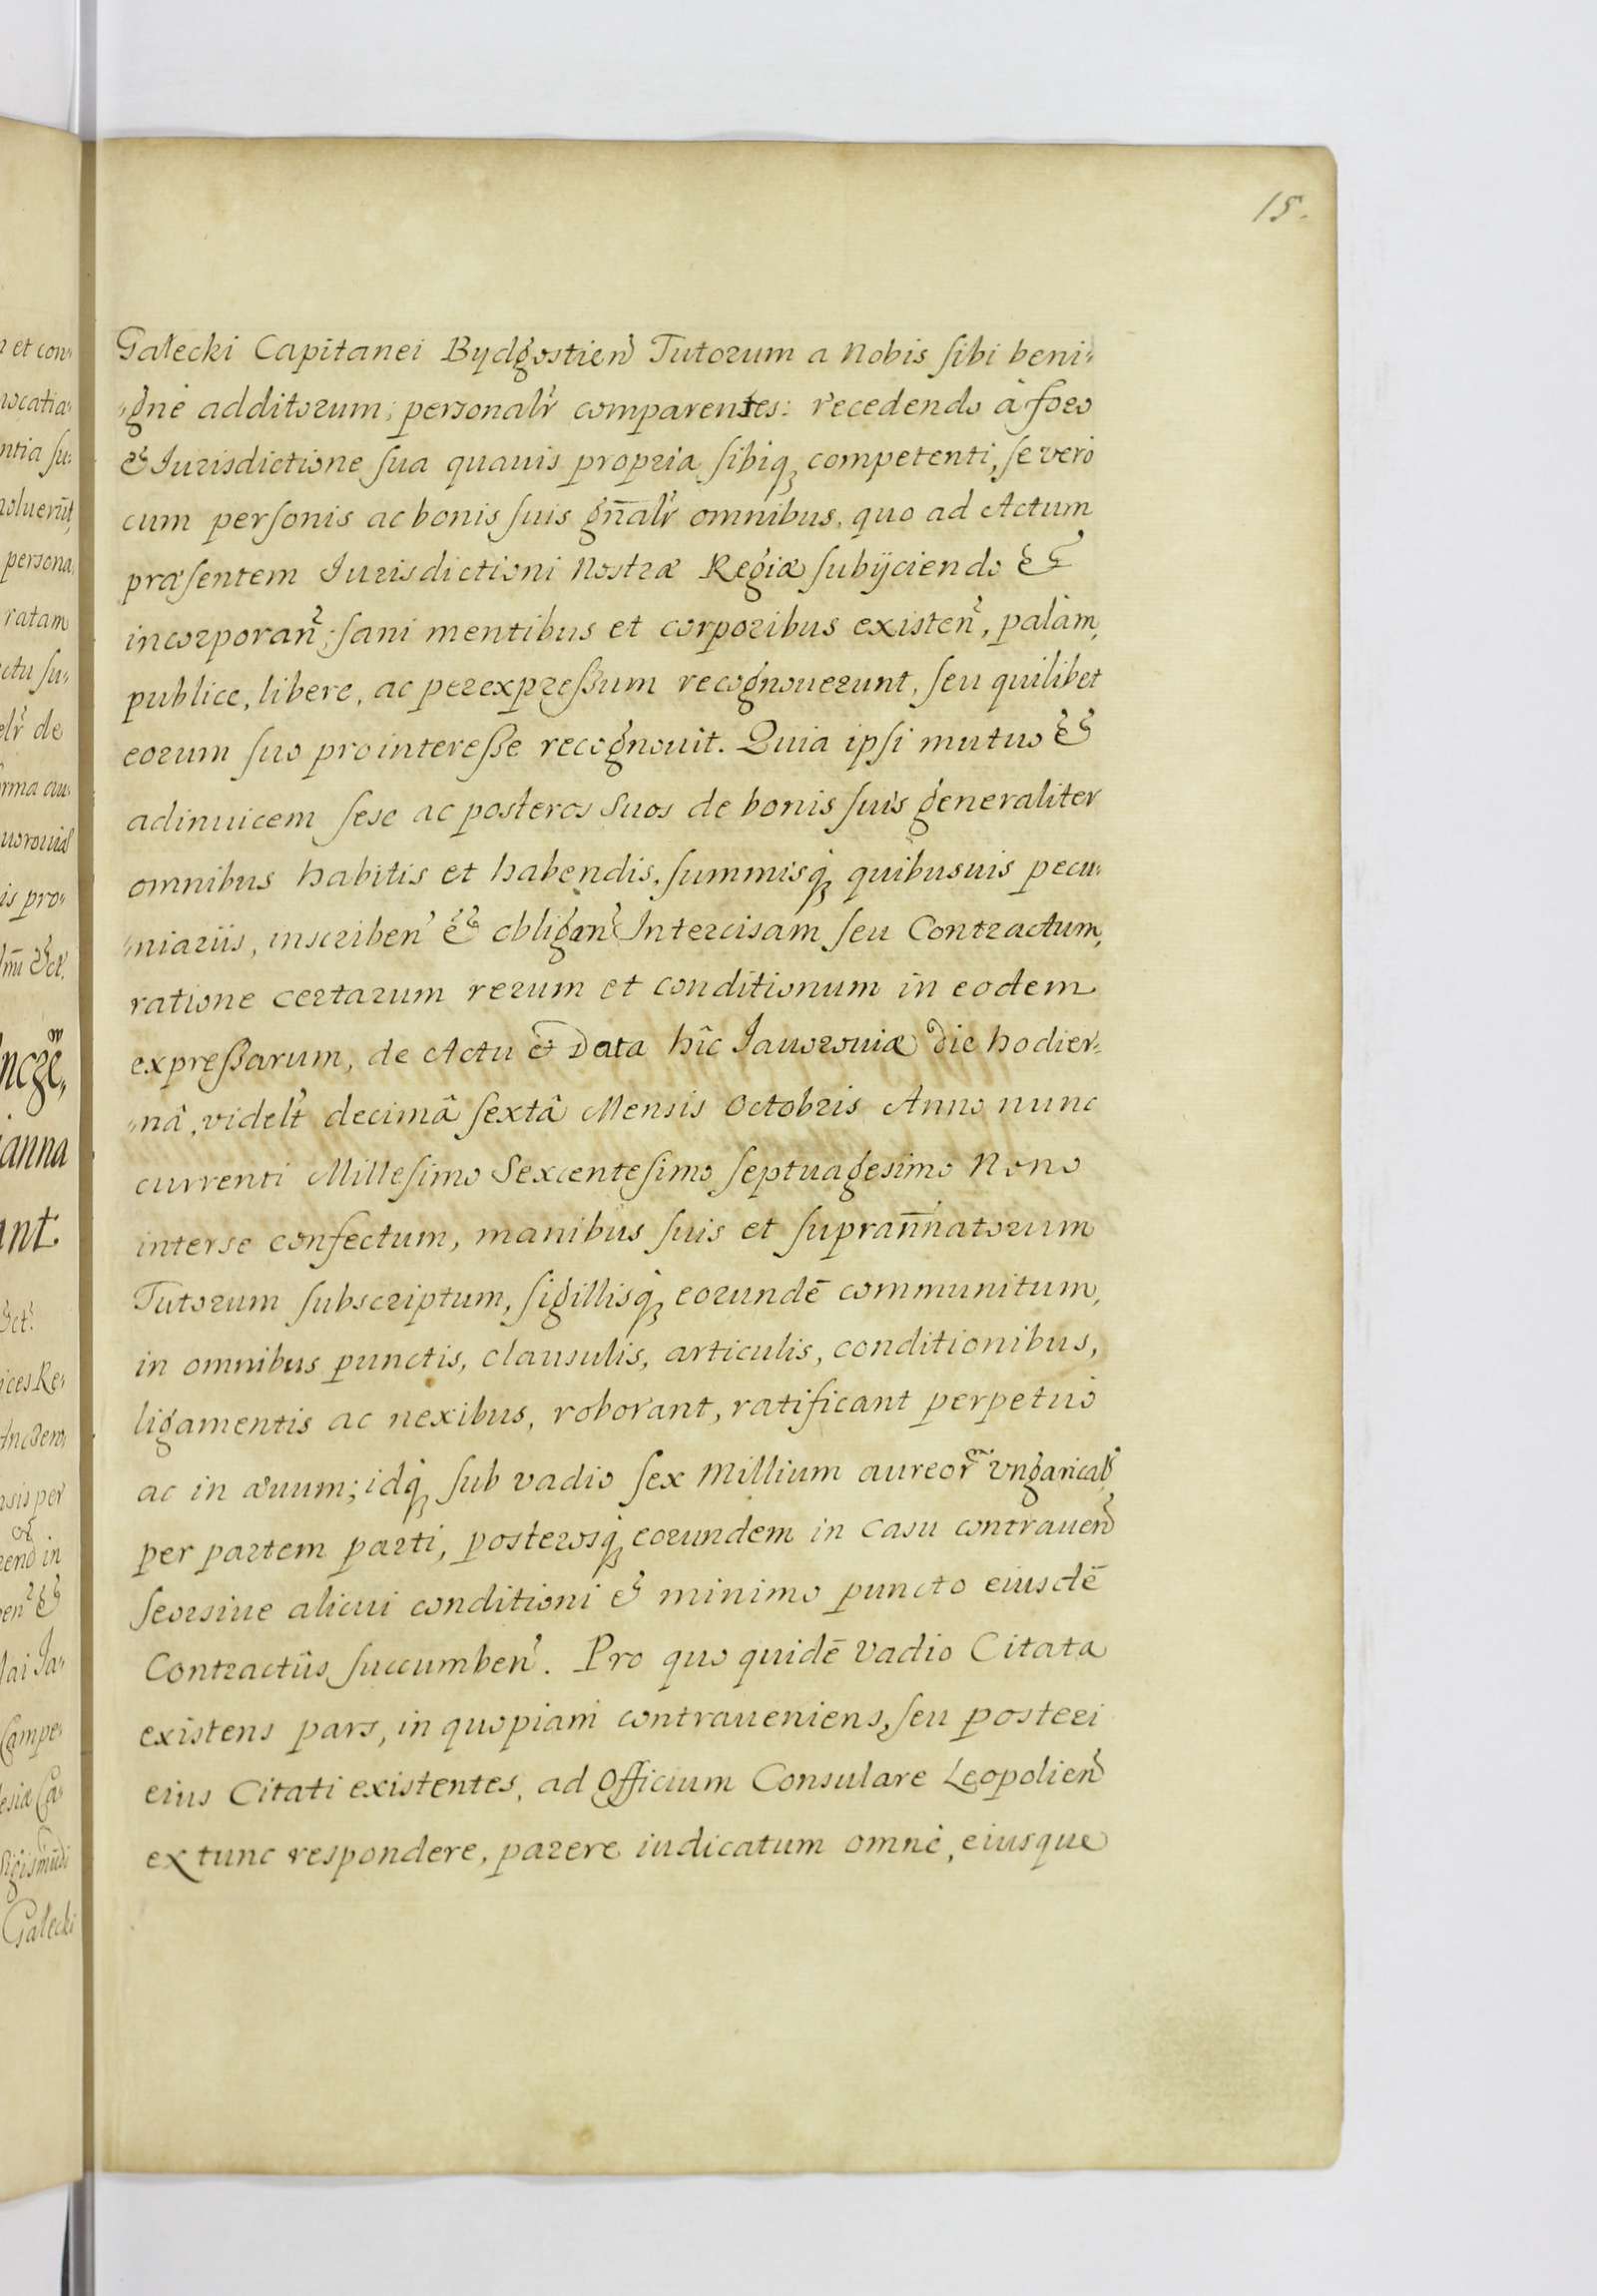 15.
Gałecki Capitanei Bydgostien̄ Tutorum a Nobis sibi beni⸗
⸗gnè additorum; personalr̄ comparentes: recedendo à foro
& Iurisdictione sua quauis propria sibiq; competenti, se verò
cum personis ac bonis suis gn̄alr̄ omnibus, quo ad Actum
præsentem Iurisdictioni Nostræ Regiæ subijciendo &
incorporan̄; sani mentibus et corporibus existen̄, palàm,
publice, libere, ac perexpressum recognouerunt, seu quilibet
eorum suo prointeresse recognouit. Quia ipsi mutuo &
adinuicem sese ac posteros suos de bonis suis generaliter
omnibus habitis et habendis, summisq́; quibusuis pecu⸗
⸗niariis, inscriben̄ & obligan̄ Intercisam seu Contractum,
ratione certarum rerum et conditionum in eodem
expressarum, de Actu et Data hîc Iauoroviæ die hodier⸗
⸗nâ, videlt̄ decimâ sextâ Mensis Octobris Anno nunc
currenti Millesimo Sexcentesimo septuagesimo Nono
interse confectum, manibus suis et supran̄natorum
Tutorum subscriptum, sigillisq́; eorundē communitum,
in omnibus punctis, clausulis, articulis, conditionibus,
ligamentis ac nexibus, roborant, ratificant perpetuò
ac in æuum; idq́; sub vadio sex Millium aureor̄ Vngarical̄
per partem parti, posterosq́; eorundem in casu contrauen̄
seorsiue alicui conditioni & minimo puncto eiusdē
Contractûs succumben̄. Pro quo quidē Vadio Citata
existens pars, in quopiam contraueniens, seu posteri
eius Citati existentes, ad Officium Consulare Leopolien̄
ex tunc respondere, parere iudicatum omnè, eiusque